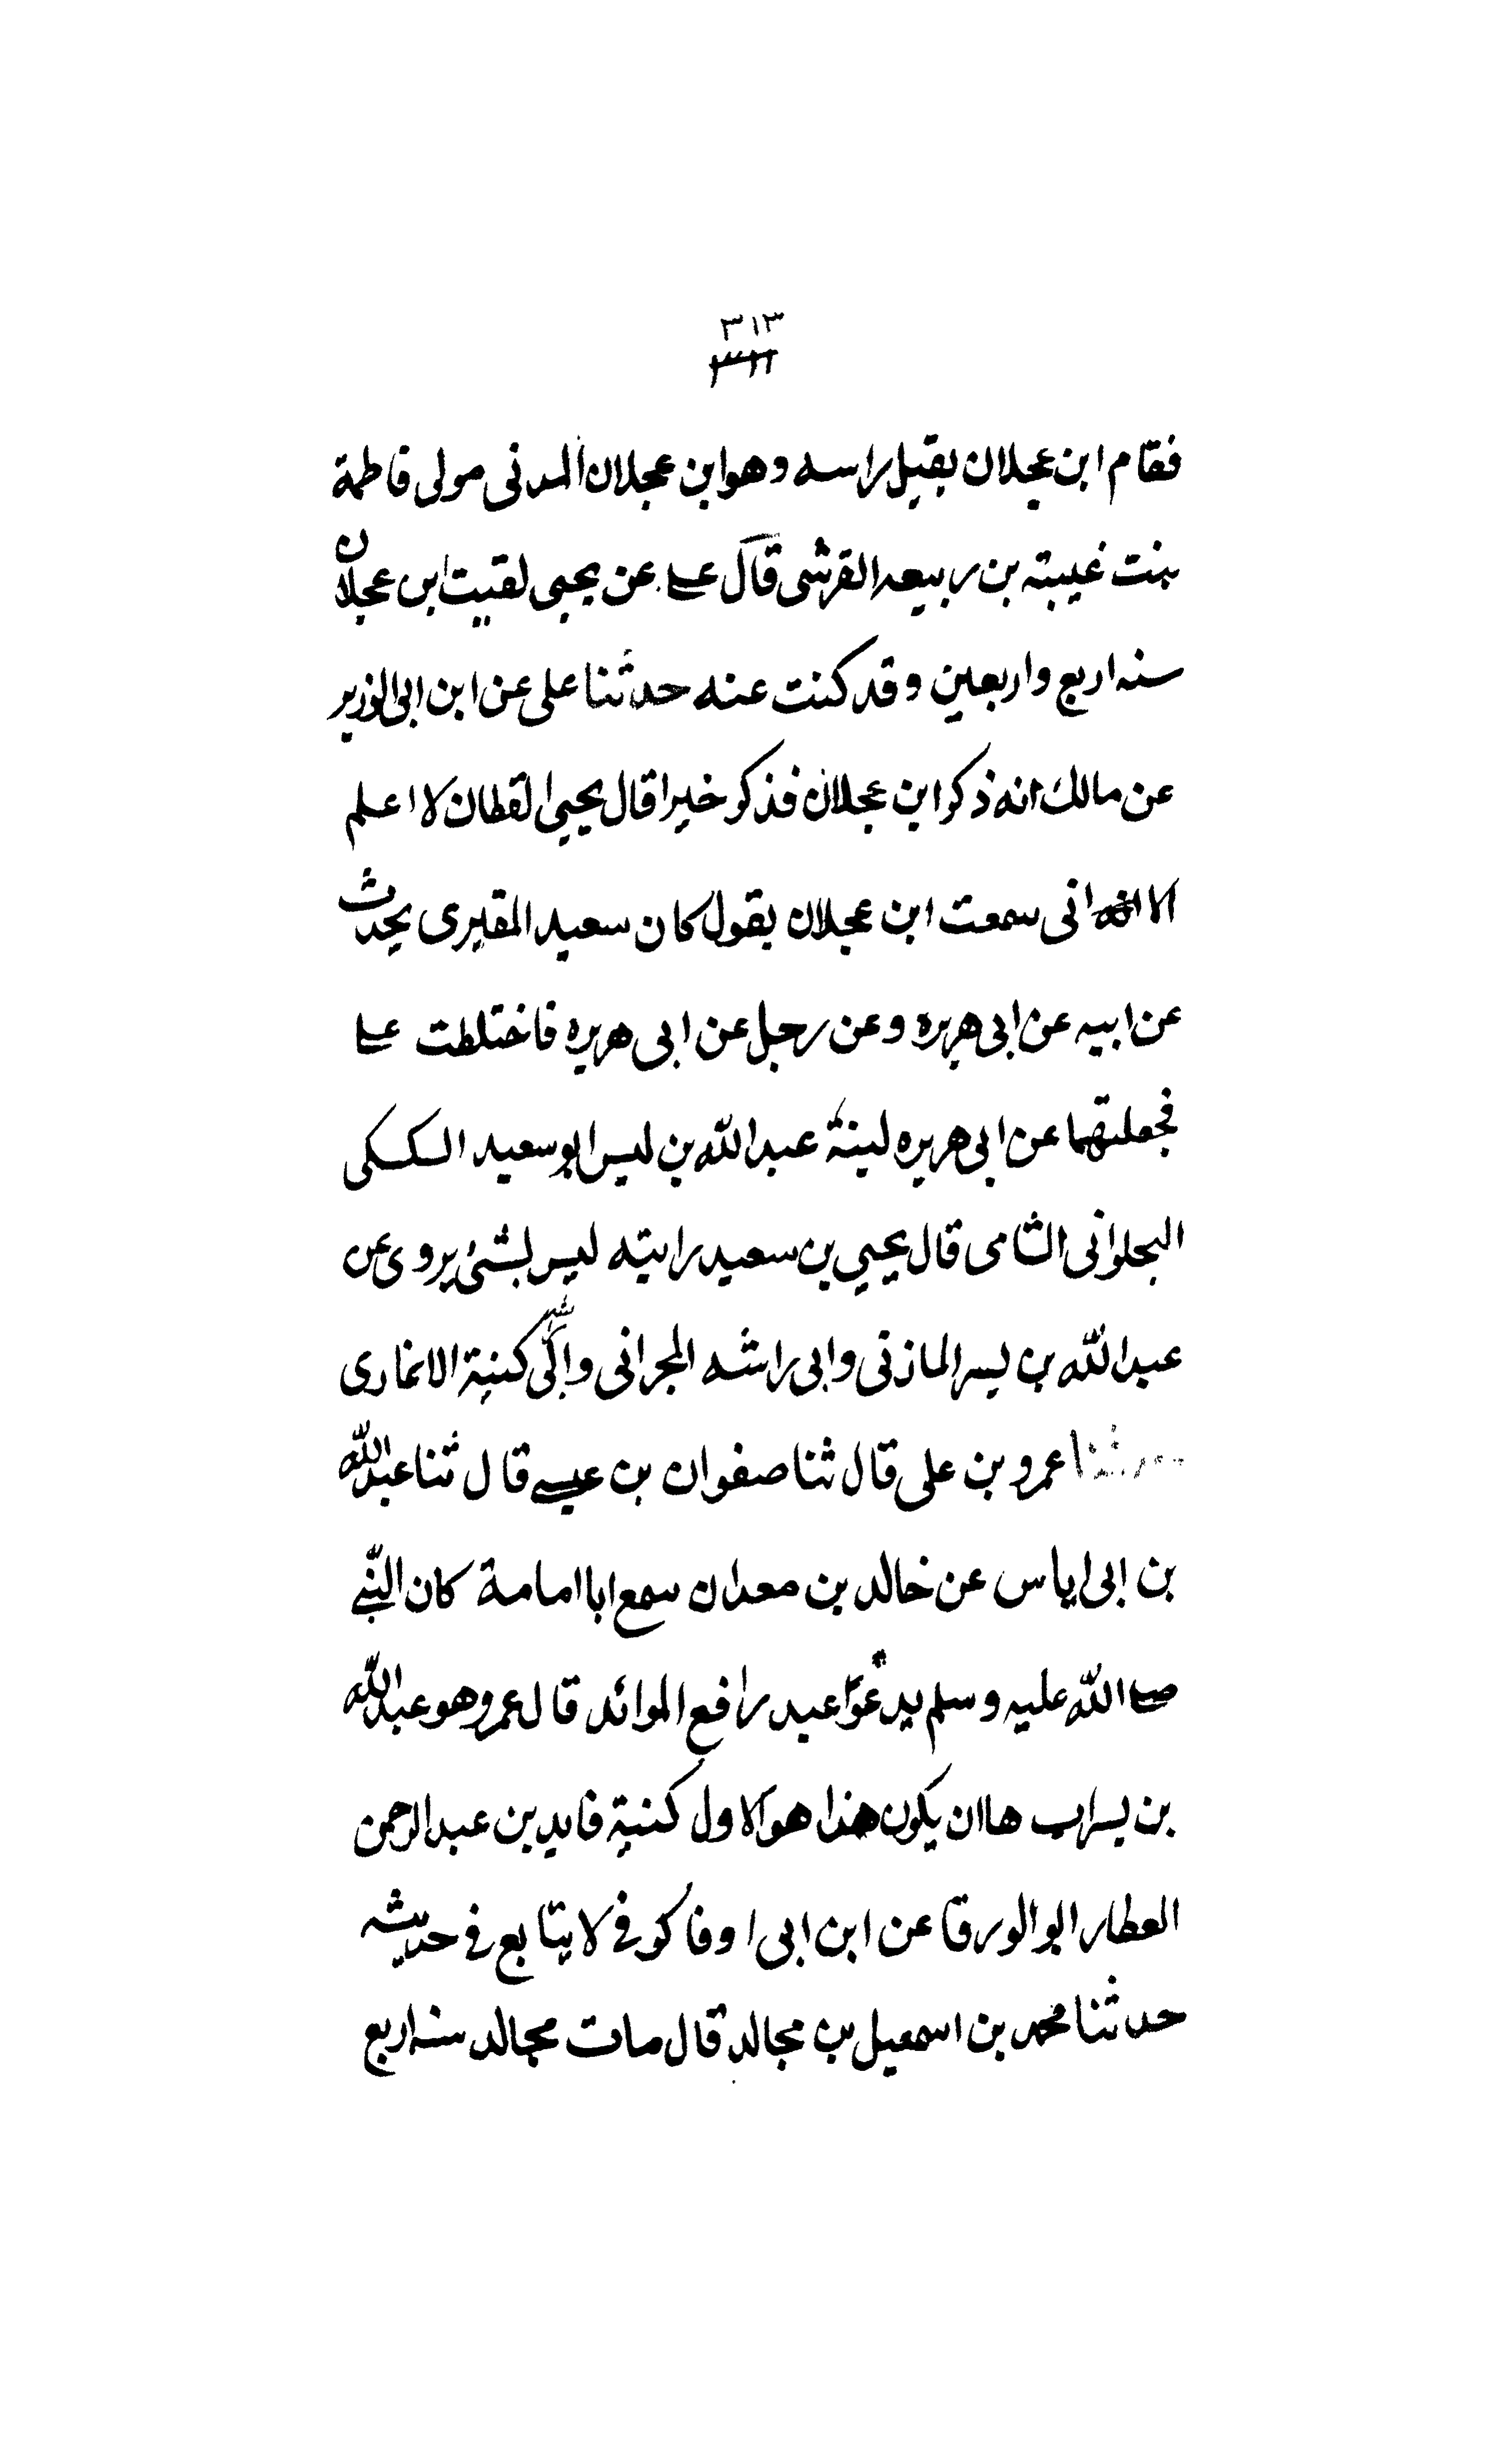 ٣١٣
فقام ابن عجلان يقبل راسه وهو ابن عجلان المدنى مولى فاطمة
بنت عيبته بن ربيعه القرشى قال على عن يحيى لقيت ابن عجلان
سنه اربع واربعين وقد كنت عنه حدثنا على عن ابن ابى الوزير
عن مالك انه ذكر ابن عجلان فذكر خيرا قال يحيى القطان لا اعلم
الا انى سمعت ابن عجلان يقول كان سعيد المقبرى يحدث
عن ابيه عن ابى هريره وعن رجل عن ابى هريره فاختلطت على
فجعلتهما عن ابى هريره عبد الله بن بسر ابو سعيد السكسكى
الشامى قال يحيى بن سعيد رايته ليس بشئ يروى عن
عبد الله بن بسر المازنى وابى راشد كنية الانمارى
حدثنا عمرو بن على قال ثنا صفوان بن عيسى قال ثنا عبد الله
بن ابى اياس عن خالد بن معدان سمع ابا امامة كان النبى
صلى الله عليه وسلم يدعو عند رافع الموائد قال عمرو هو عبد الله
بن بسر ان يكون هذا هو الاول كنية فايد بن عبد الرحمن
العطار ابو الورقا عن ابن ابى اوفا كوفى لا يتابع فى حديثه
حدثنا محمد بن اسمعيل بن مجالد قال مات مجالد سنه اربع